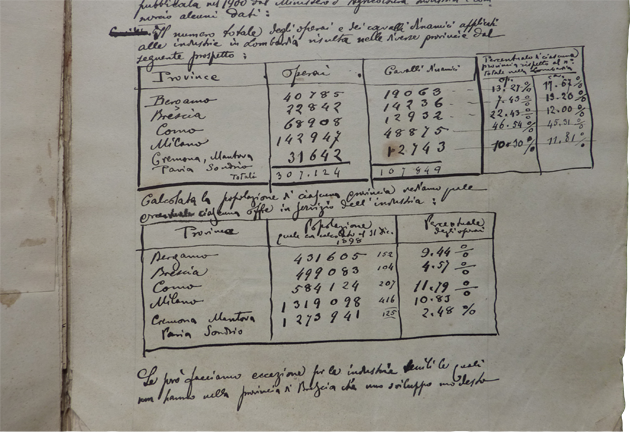 pubblicata nel 1900 dal Ministero d'Agricoltura Industria e Com
mercio alcuni dati:
Il numero totale degli operai e dei cavalli dinamici applicati
alle industrie in Lombardia risulta nelle diverse provincie dal
seguente prospetto:
Province Operai Cavalli dinamici Percentuale di ciascuna
provincia rispetto al
totale nella Lombardia
Op.
Bergamo 40785 19063 13.27% 17.67%
Brescia 22842 14236 7.43% 13.20%
Como 68908 12932 22.43% 12.00%
Milano 142947 48875 46.54% 45.31%
Cremona, Mantova 31642 12743 10.30% 11.81%
Pavia Sondrio
Totali 307.124 107849
Calcolata la popolazione di ciascuna provincia vediamo quale
percentuale ciascuna offre in servizio dell'industria:
Province Popolazione Percentuale
quale calcolata al 31 dic. degli operai
1898
Bergamo 431605 152 9.44%
Brescia 499083 104 4.57%
Como 584124 207 11.79%
Milano 1319098 416 10.83%
Cremona Mantova 1273941 125 2.48%
Pavia Sondrio
Se però facciamo eccezione per le industrie tessili le quali
non hanno nella provincia di Brescia che uno sviluppo modesto